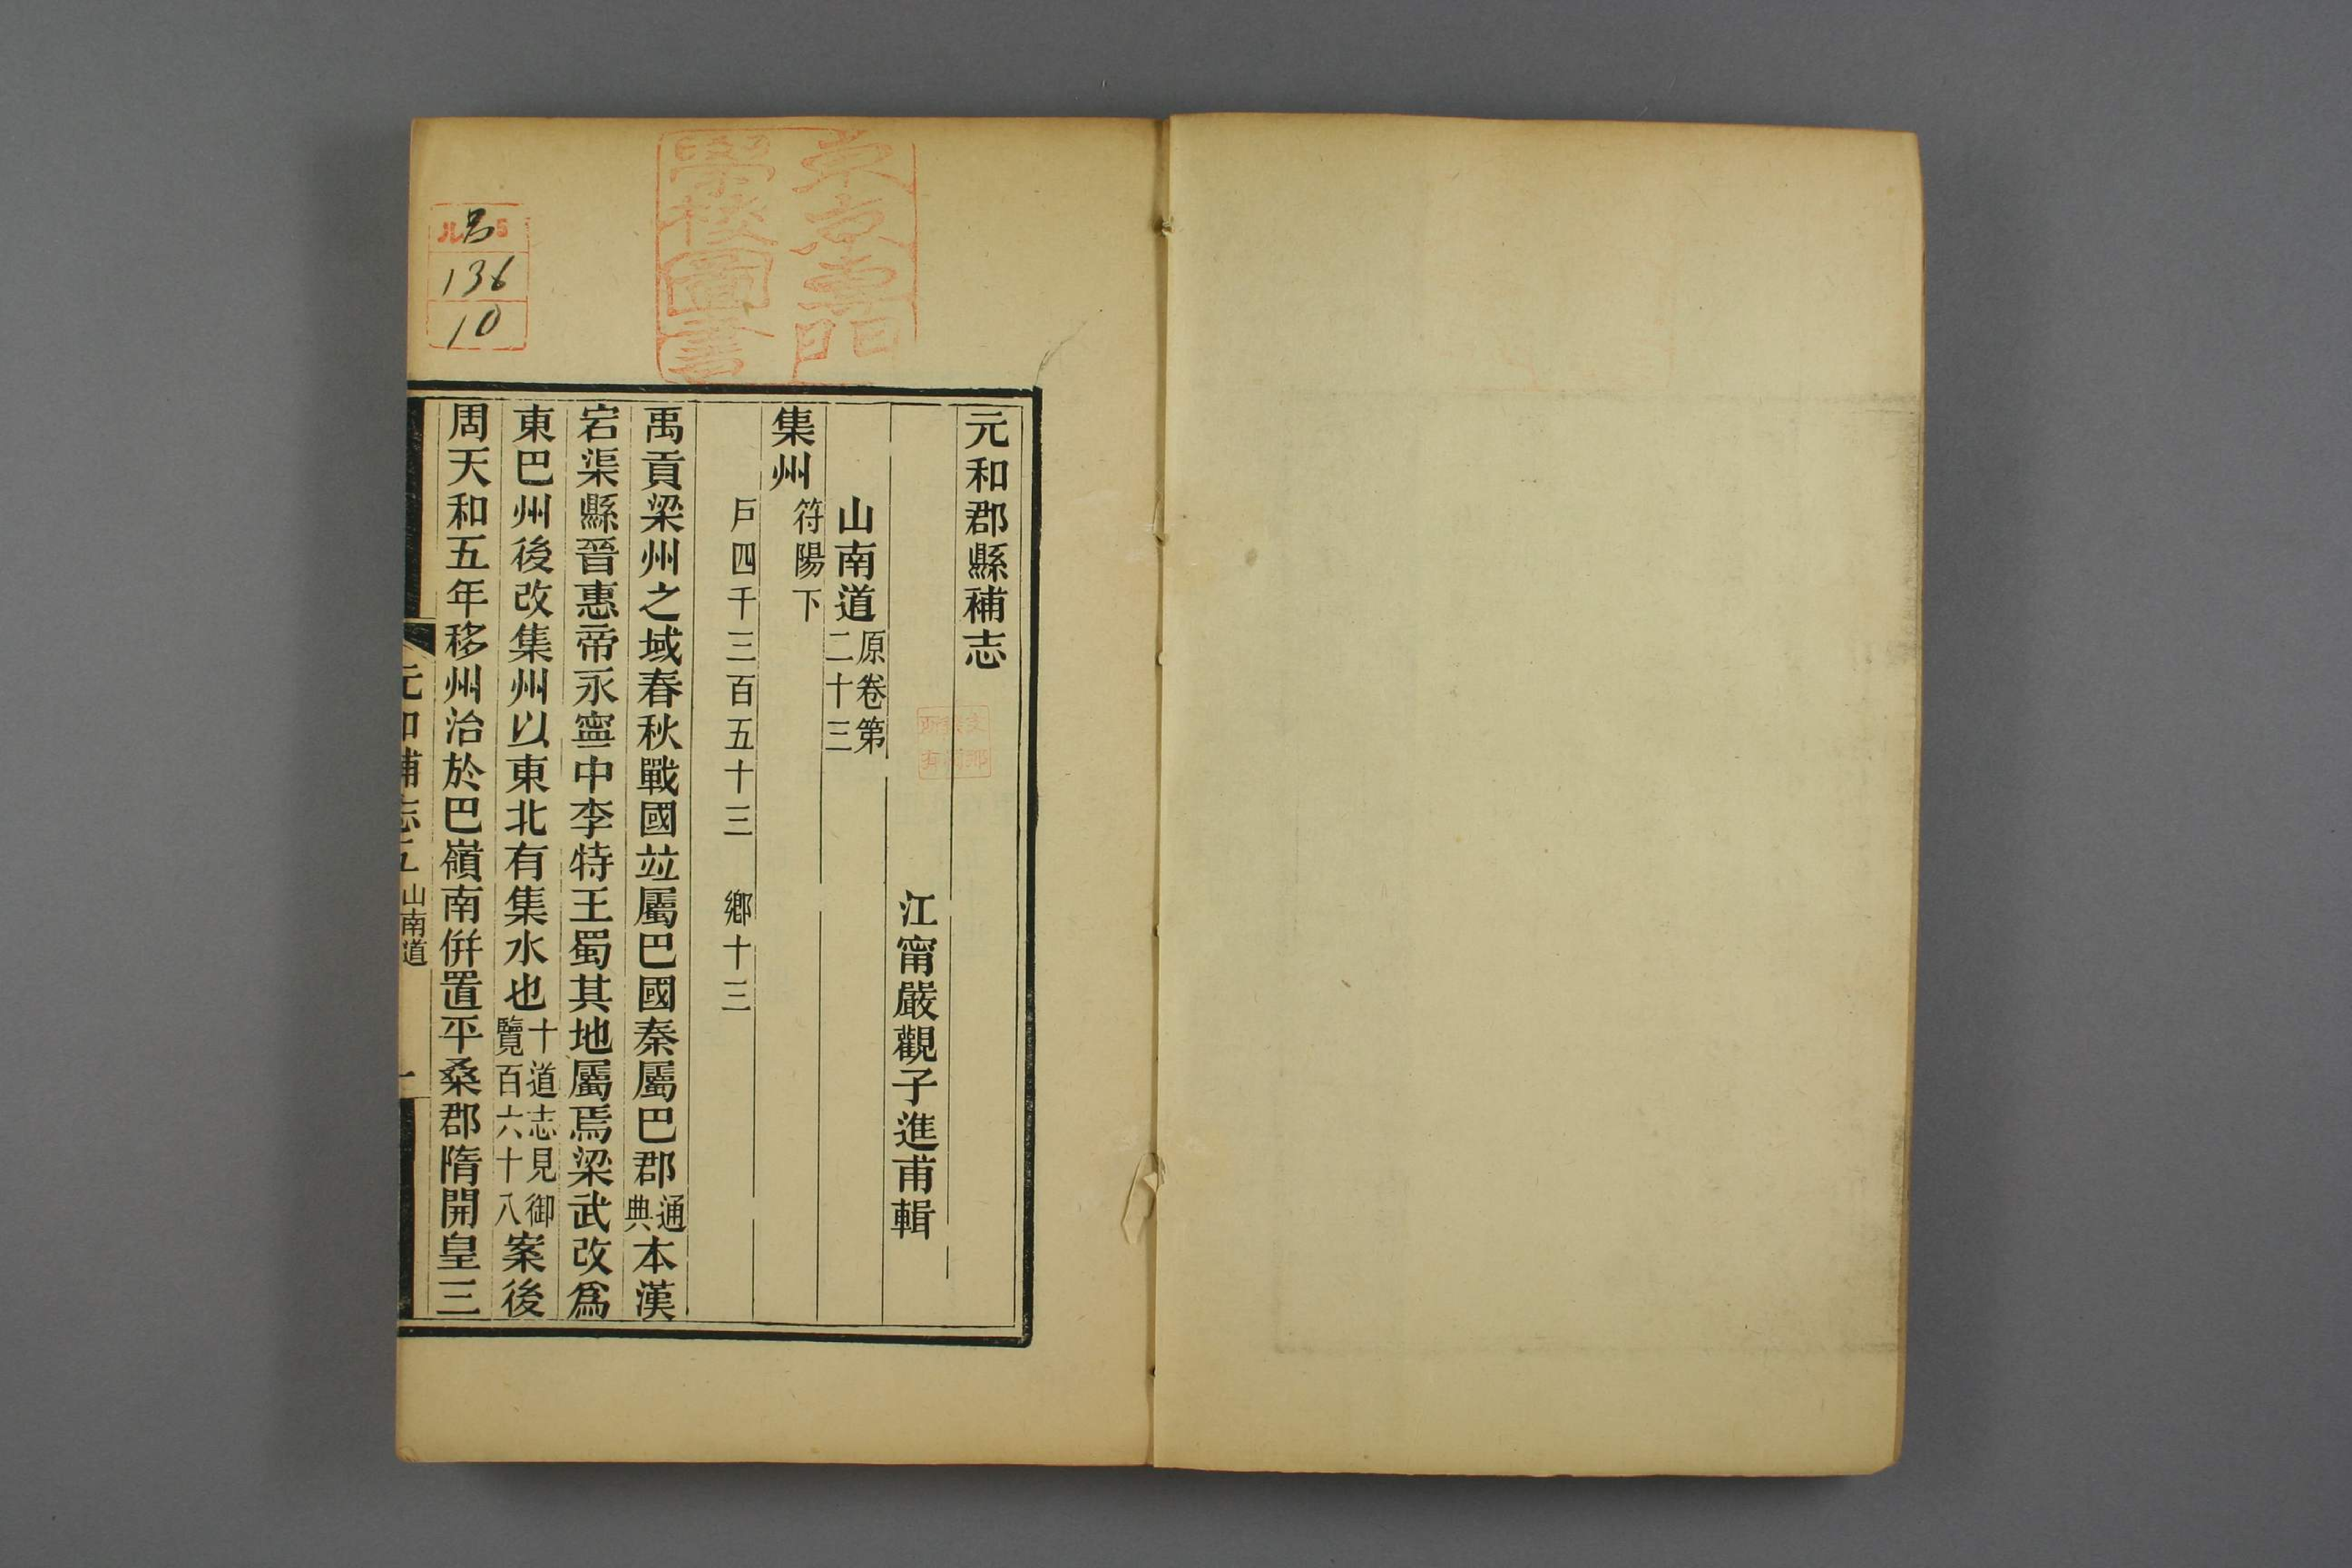 元和郡縣補志
江甯嚴觀子進甫輯
山南道原卷第二十三
集州符陽下
戶四千三百五十三　鄉十三
禹貢梁州之域春秋戰國竝屬巴國秦屬巴郡通典本漢
宕渠縣晉惠帝永寧中李特王蜀其地屬焉梁武改爲
東巴州後改集州以東北有集水也十道志見御覽百六十八案後
周天和五年移州治於巴嶺南併置平桑郡隋開皇三
元和補志五
山南道
一
東京專門
學校圖書
136
10